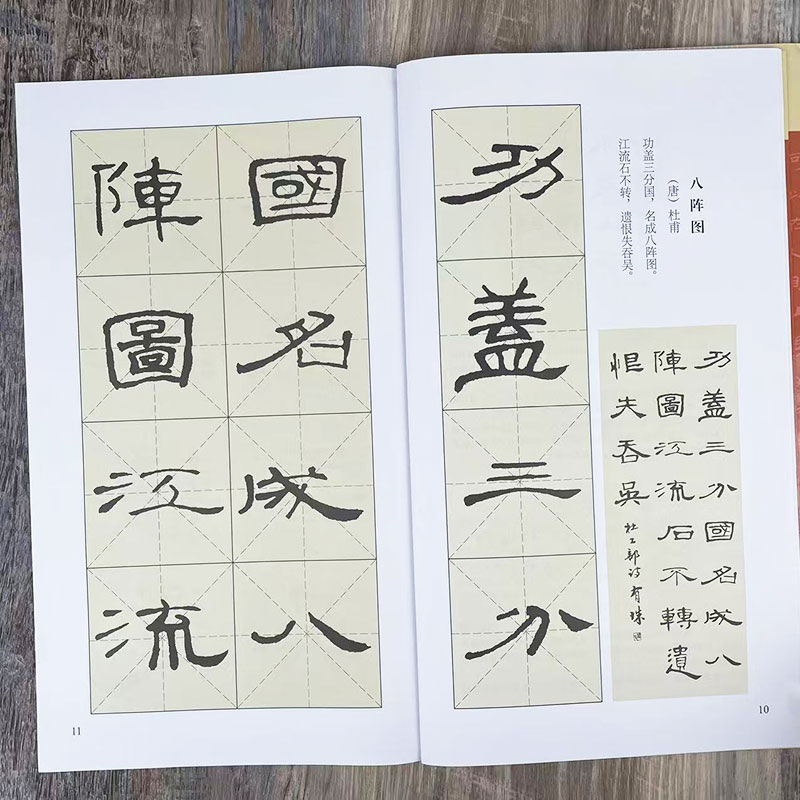 八阵图
（唐）杜甫
功盖三分国，名成八阵图。
江流石不转，遗恨失吞吴。
功蓋三分國名成八
陣圖江流石不轉遺
恨失吞吳
杜工部詩有珠
功蓋三分
10
國名成八
陣圖江流
11